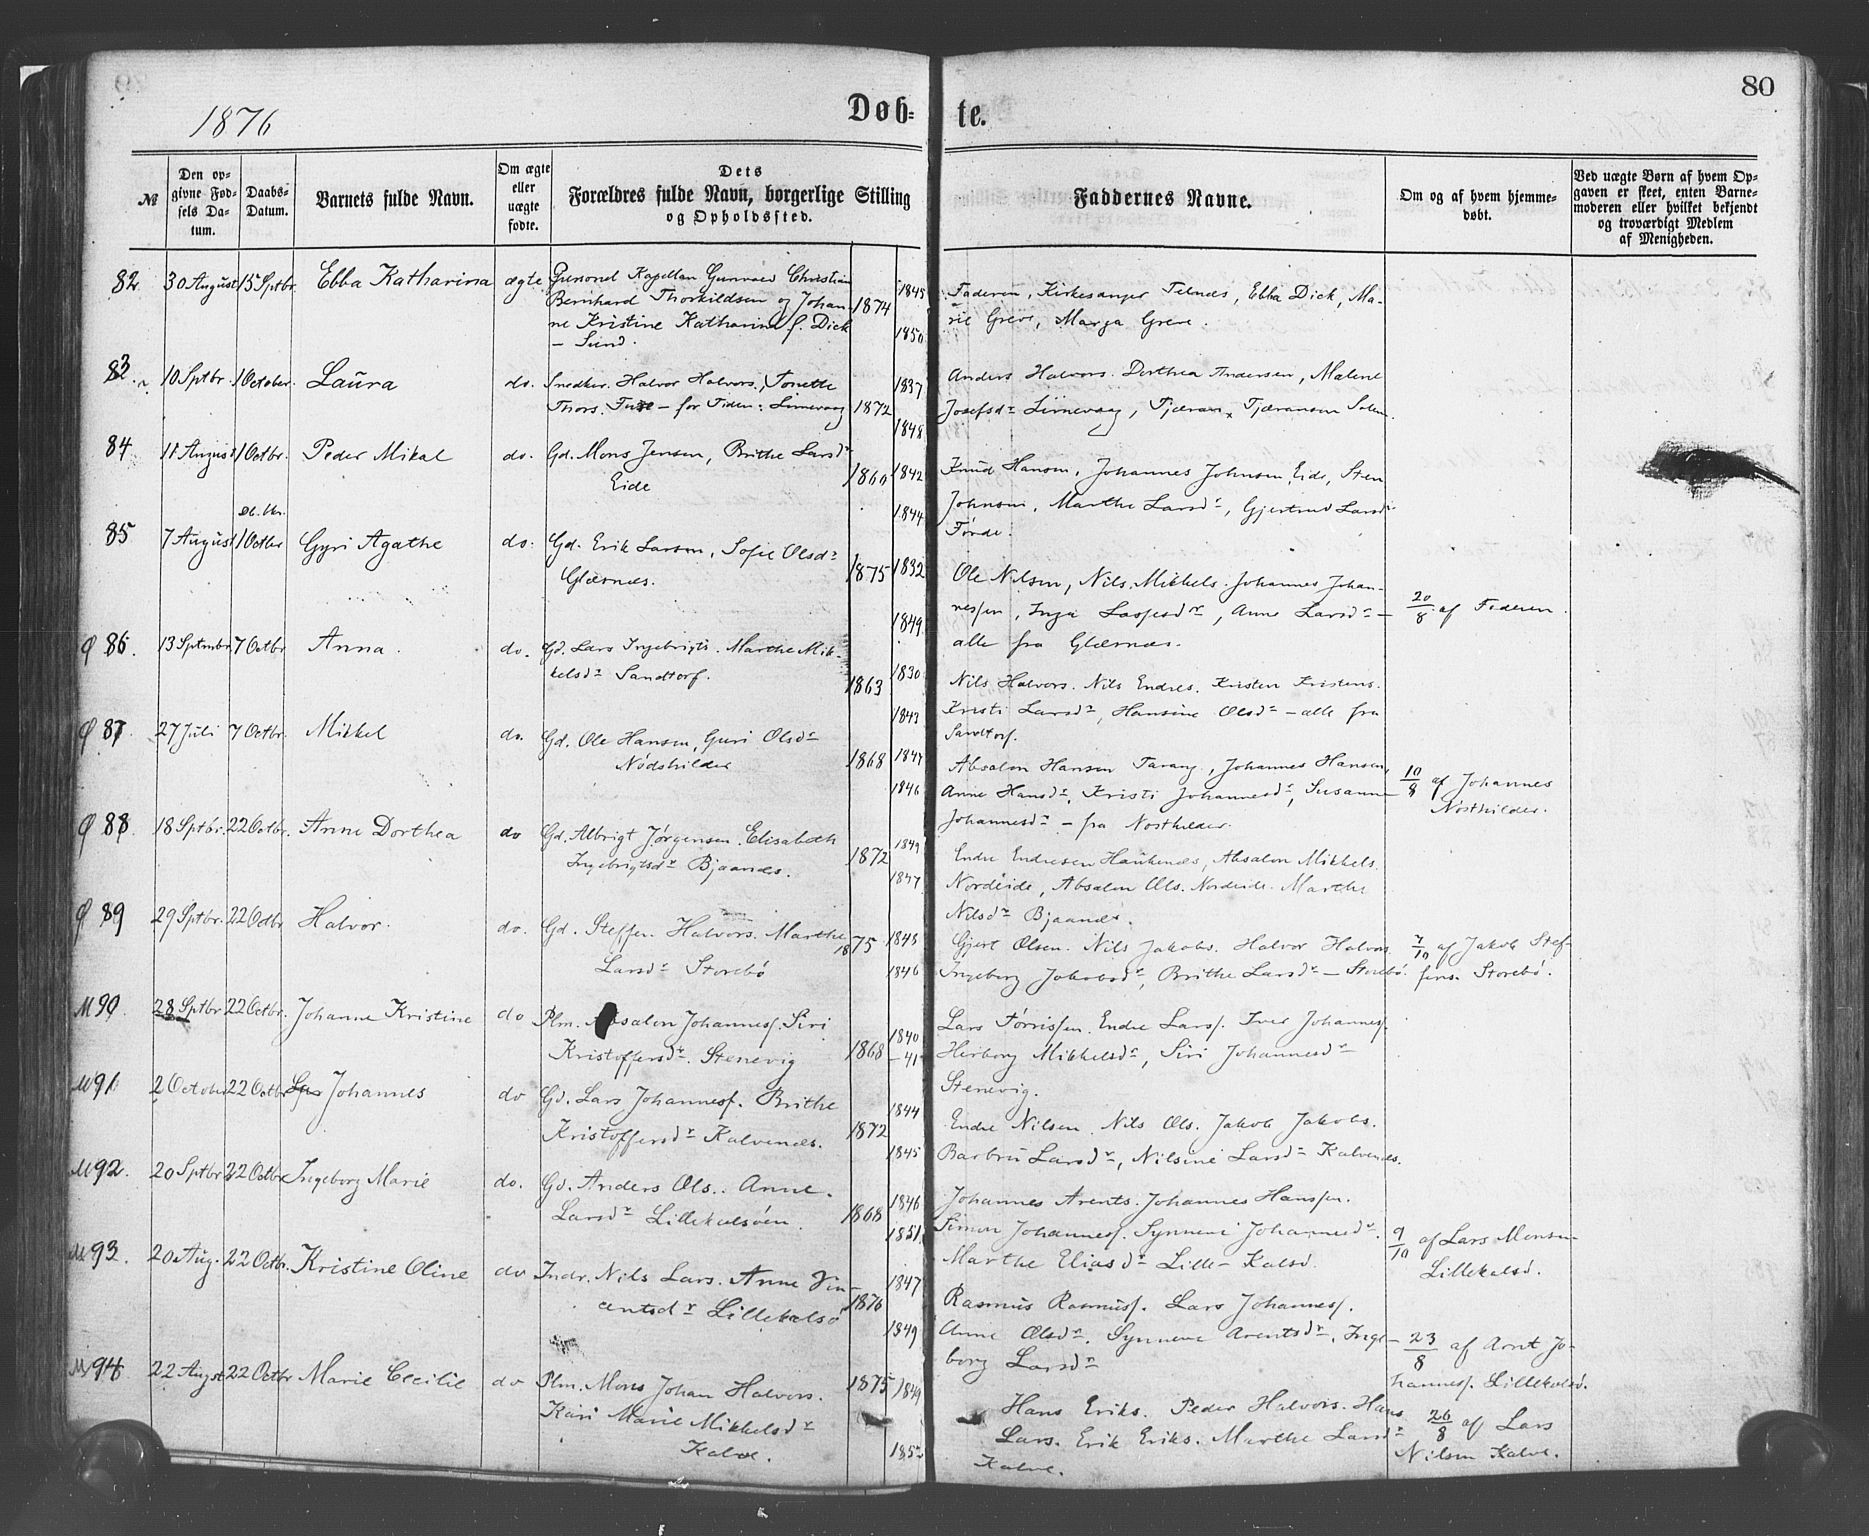 80
1876
Døb-
te.
№
Den op-
givne Fød-
sels Da-
tum.
Daabs-
Datum.
Barnets fulde Navn.
Om ægte
eller
uægte
fødte.
Dets
Forældres fulde Navn, borgerlige Stilling
og Opholdssted.
Faddernes Navne.
Om og af hvem hjemme-
døbt.
Ved uægte Børn af hvem Op-
gaven er skeet, enten Barne-
moderen eller hvilket bekjendt
og troværdigt Medlem
af Menigheden.
82. 30 August 15 Sptbr. Ebba Katharina ægte
Personel Kapellan Gunvald Christian
Bernhard Thorkildsen og Johan-
ne Kristine Katharina f. Dick
– Sund.
1874
1845
1850
Faderen, Kirkesanger Telnæs, Ebba Dick, Ma-
rie Greve, Marga Greve.
83. 10 Sptbr. 1 October. Laura do.
Snedker. Halvor Halvors., Tonette
Thors. – for Tiden: Linnevaag
1872
1837
1848
Anders Halvors. Dorthea Andersen, Malene
Josefsdr Linnevaag,
84 11 August 1 Octbr. Peder Mikal do.
Gd. Mons Jensen, Brithe Larsdr
Eide
1860
1842
1844
Knud Hansen, Johannes Johnsen, Eide, Sten
Johnsen, Marthe Larsdr, Gjertrud Larsdr
Førde.
85 7 August 1 Octbr Gyri Agathe do.
Gd. Erik Larsen, Sofie Olsdr
Glæsnæs.
1875
1832
1849
Ole Nilsen, Nils Mikkels. Johannes Johan-
nessen, Inga Larsdr, Anne Larsdr –
alle fra Glæsnæs.
20/8 af Faderen.
Ø 86. 13 Septmbr. 7 Octbr Anna. do.
Gd. Lars Ingebrigts. Marthe Mik-
kelsdr Sandtorf.
1863
1830
1843
Nils Halvors. Nils Endres. Kristen Kristens.
Kristi Larsdr, Hansine Olsdr – alle fra
Sandtorf.
Ø 87. 27 Juli 7 Octbr. Mikkel do.
Gd. Ole Hansen, Guri Olsdr
Nødshilder
1868
1847
1846
Absalon Hansen Tarang, Johannes Hansen,
Anne Hansdr, Kristi Johannesdr, Susanne
Johannesdr – fra Nosthilder.
10/8 af Johannes
Nosthilder.
Ø 88. 18 Sptbr. 22 Octbr. Anne Dorthea do
Gd. Albrigt Jørgensen. Elisabeth
Ingebrigtsdr Bjaanæs.
1872
1849
1847
Endre Endresen Haukenæs, Absalon Mikkels.
Nordeide, Absalon Ols. Nordeide. Marthe
Nilsdr Bjaanæs.
Ø 89 29 Sptbr. 22 Octbr Halvor. do.
Gd. Steffen Halvors. Marthe
Larsdr Storebø
1875
1848
1846
Gjert Olsen. Nils Jakobs. Halvor Halvors.
Ingeborg Jakobsdr, Brithe Larsdr – Storebø.
7/10 af Jakob Stef-
fens. Storebø.
M 90. 28 Sptbr 22 Octbr. Johanne Kristine do
Plm. Absalon Johannesf. Siri
Kristoffersdr. Stenevig
1868
1840
–41
Lars Tørrissen. Endre Larsf. Iver Johannesf.
Herborg Mikkelsdr, Siri Johannesdr
Stenevig.
M 91 2 October 22 Octbr Johannes do
Gd. Lars Johannesf. Brithe
Kristoffersdr Kalvenæs.
1872
1844
1845
Endre Nilsen. Nils Ols. Jakob Jakobs.
Barbru Larsdr, Nilsine Larsdr Kalvenæs.
M 92. 20 Sptbr 22 Octbr. Ingeborg Marie do.
Gd. Anders Ols. Anne
Larsdr Lillekalsøen.
1868
1846
1851
Johannes Arents. Johannes Hanssen.
Simon Johannesf. Synneve Johannesdr.
Marthe Eliasdr Lille-Kalsø.
9/10 af Lars Monsen
Lillekalsø.
M 93. 20 Aug. 22 Octbr. Kristine Oline do
Indr. Nils Lars. Anne Vin-
centsdr Lillekalsø
1876
1847
1849
Rasmus Rasmusf. Lars Johannesf.
Anne Olsdr. Synneve Arentsdr, Inge-
borg Larsdr
23/8 af Arnt Jo-
hannesf. Lillekalsø.
M 94 22 Augst 22 Octbr Marie Cecilie do
Plm. Mons Johan Halvors.
Kari Marie Mikkelsdr
Kalve.
1875
1849
1852
Hans Eriks. Peder Halvors. Hans
Lars. Erik Eriks. Marthe Larsdr
Kalve.
26/8 af Lars
Nilsen Kalve.